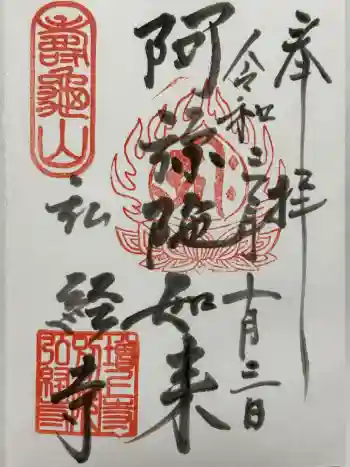 奉拝
令和三年十月三日
阿弥陀如来
弘経寺
壽亀山